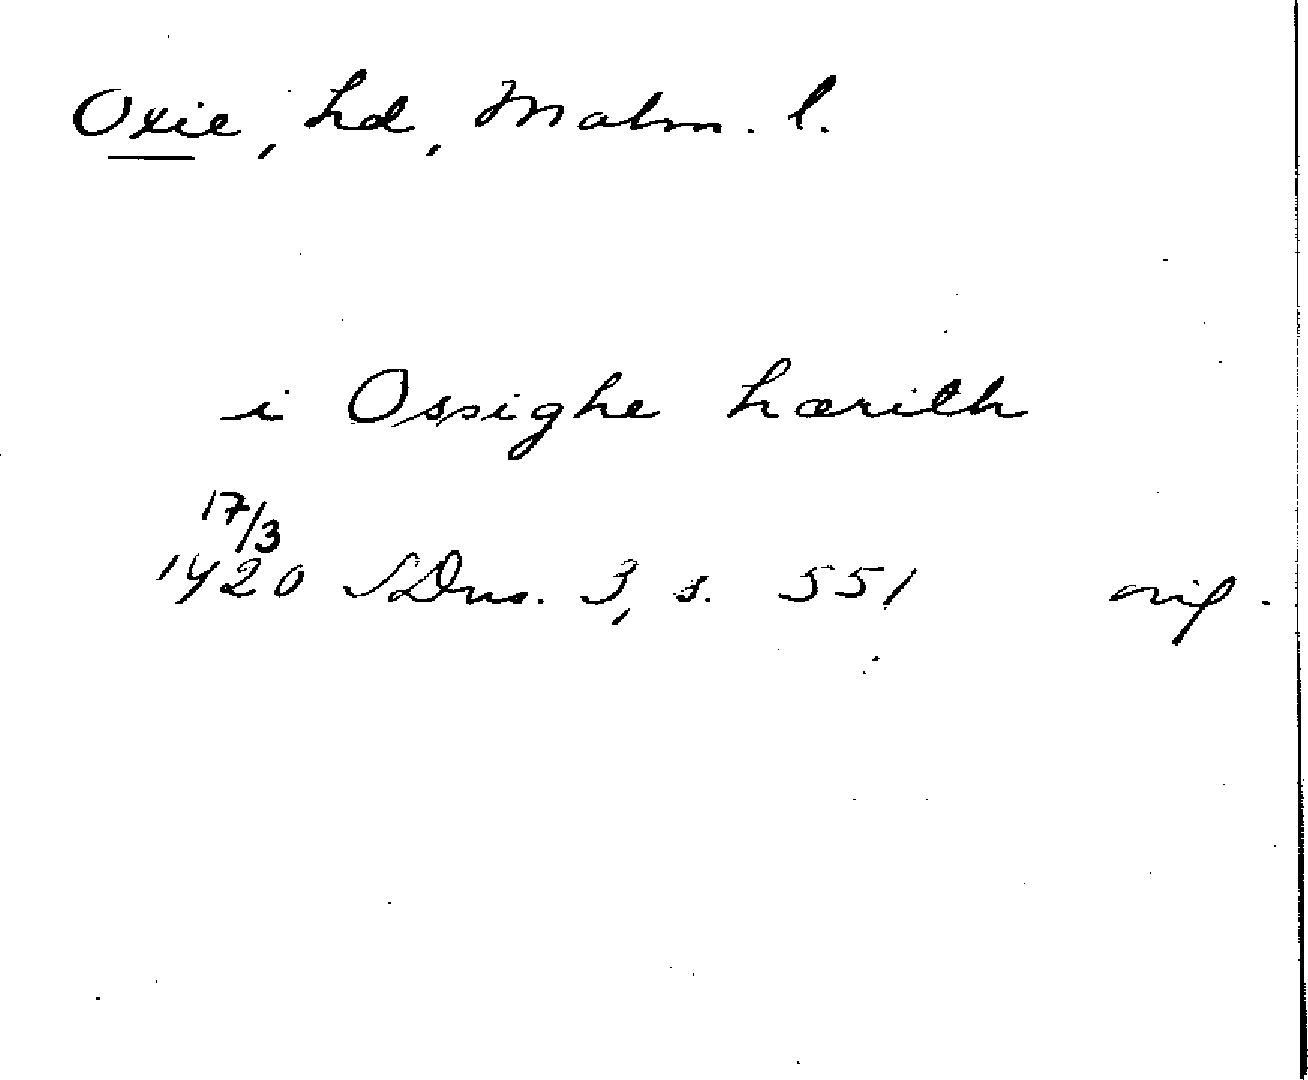 Oxie, hd, Malm. l.
i Ossighe hærith
17/3
1420 SDns. 3, s. 551 orig.